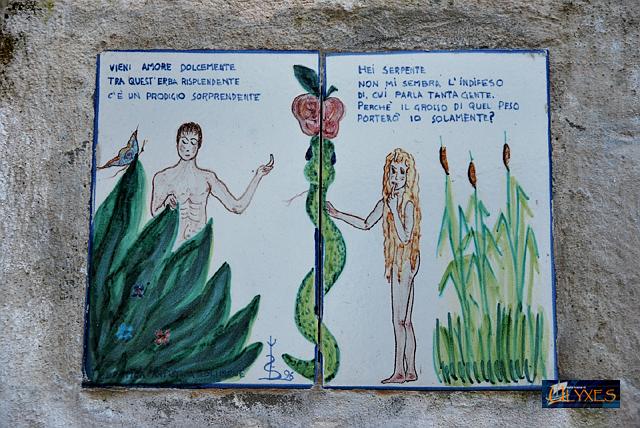 VIENI AMORE DOLCEMENTE
TRA QUEST'ERBA RISPLENDENTE
C'È UN PRODIGIO SORPRENDENTE
HEI SERPENTE
NON MI SEMBRA L'INDIFESO
DI CUI PARLA TANTA GENTE.
PERCHÈ IL GROSSO DI QUEL PESO
PORTERÒ IO SOLAMENTE?
96
ULYXES